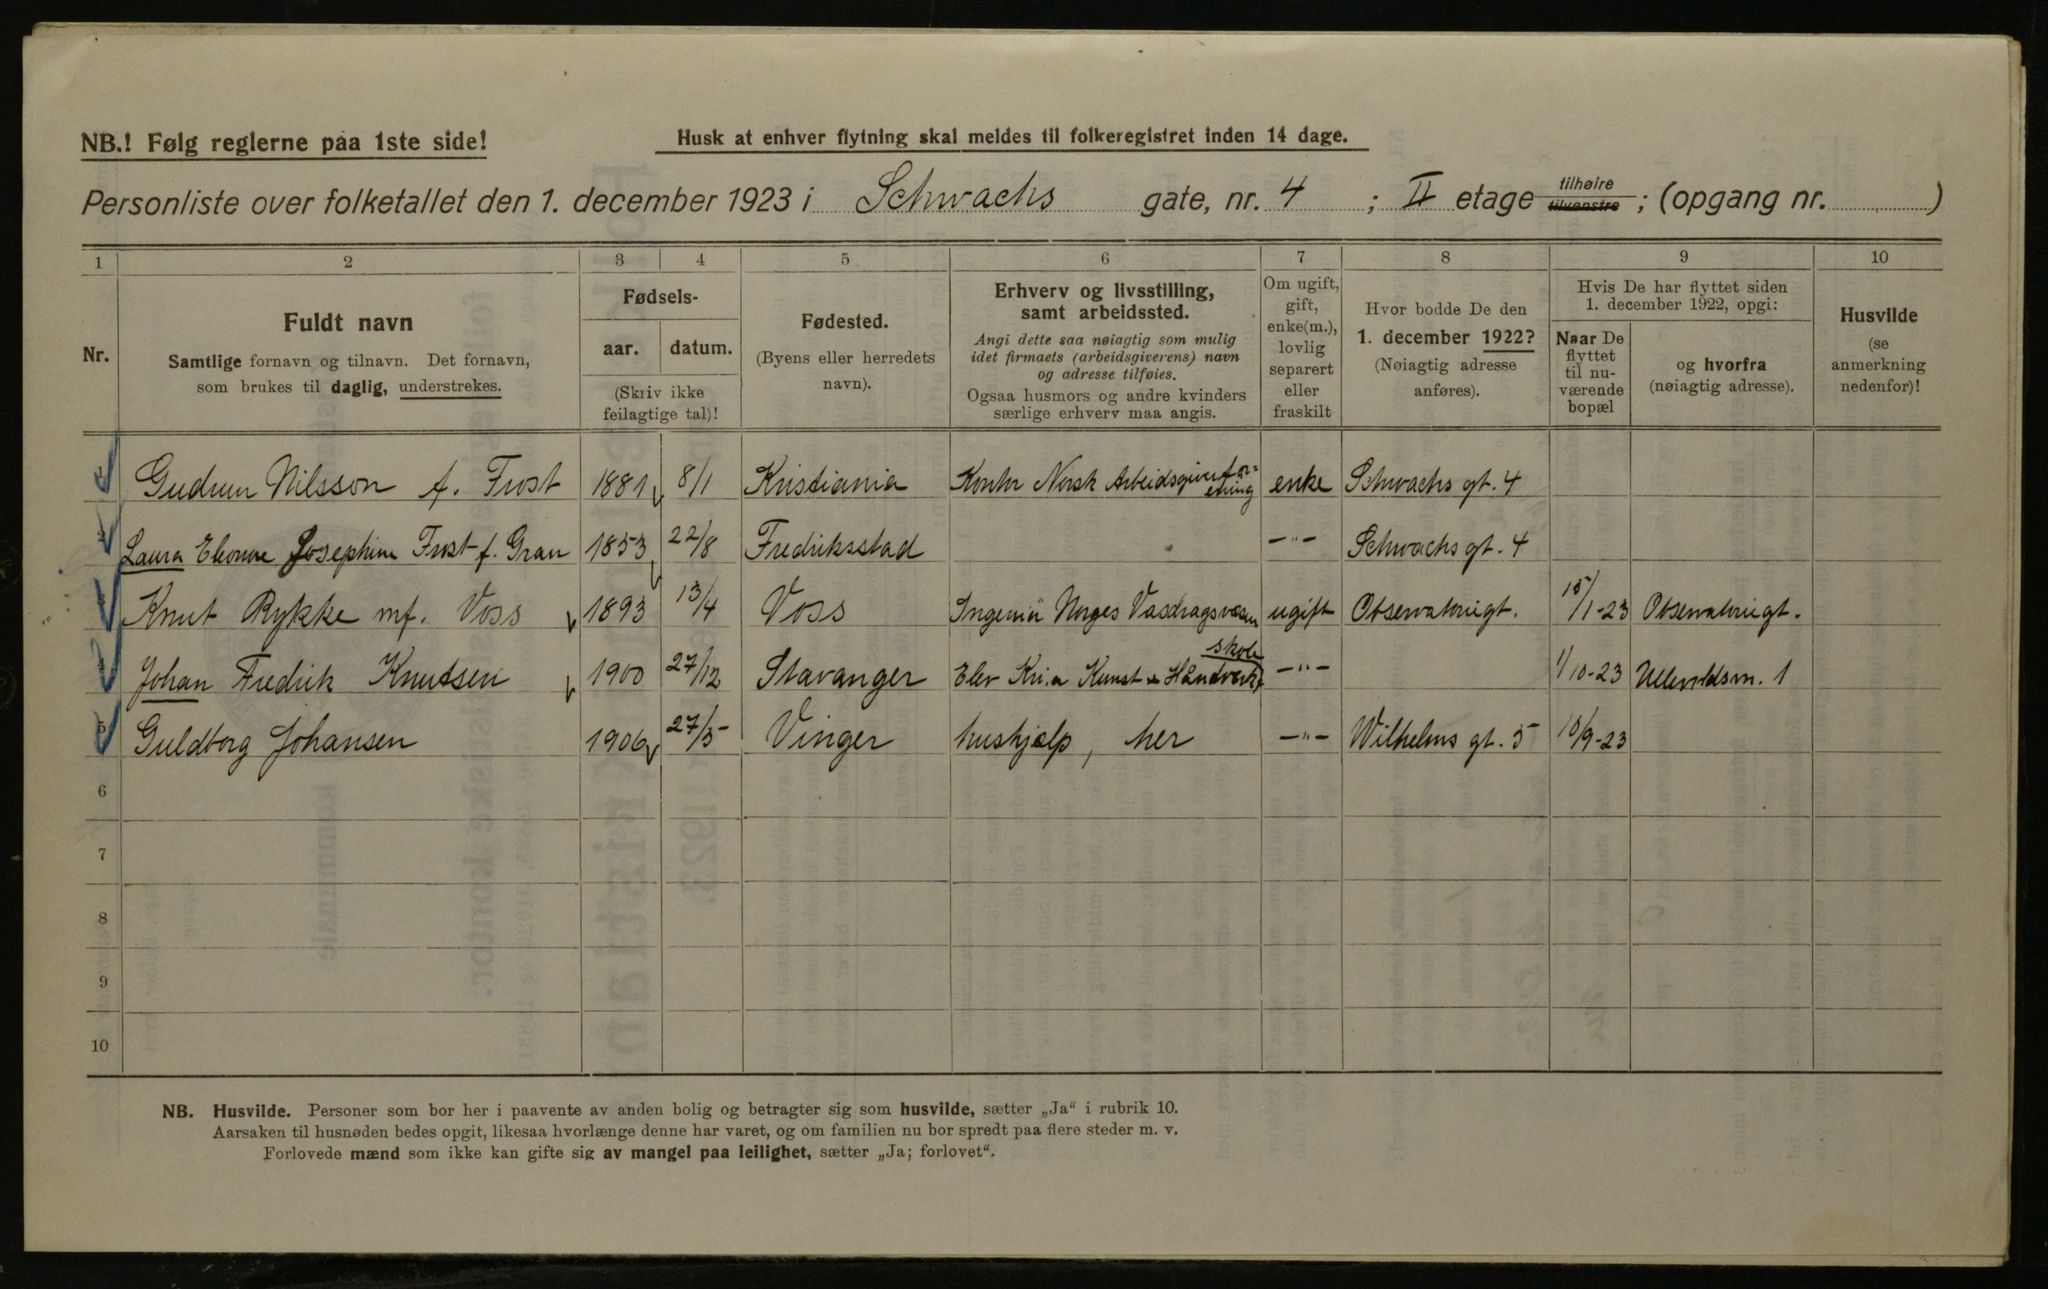 NB.! Følg reglerne paa 1ste side!
Husk at enhver flytning skal meldes til folkeregistret inden 14 dage.
Personliste over folketallet den 1. december 1923 i Schwachs gate, nr. 4 ; II etage tilhøire tilvenstre ; (opgang nr. )
1 2 3 4 5 6 7 8 9 10
Nr.
Fuldt navn
Samtlige fornavn og tilnavn. Det fornavn,
som brukes til daglig, understrekes.
Fødsels-
aar. datum.
(Skriv ikke
feilagtige tal)!
Fødested.
(Byens eller herredets
navn).
Erhverv og livsstilling,
samt arbeidssted.
Angi dette saa nøiagtig som mulig
idet firmaets (arbeidsgiverens) navn
og adresse tilføies.
Ogsaa husmors og andre kvinders
særlige erhverv maa angis.
Om ugift,
gift,
enke(m.),
lovlig
separert
eller
fraskilt
Hvor bodde De den
1. december 1922?
(Nøiagtig adresse
anføres).
Hvis De har flyttet siden
1. december 1922, opgi:
Naar De
flyttet
til nu-
værende
bopæl
og hvorfra
(nøiagtig adresse).
Husvilde
(se
anmerkning
nedenfor)!
1 Gudrun Nilsson f. Frost 1881 8/1 Kristiania Kontor Norsk Arbeidsgiverforening enke Schwachs gt. 4
2 Laura Eleonore Josephine Frost f. Gran 1853 22/8 Fredriksstad —"— Schwachs gt. 4
3 Knut Rykke mf. Voss 1893 13/4 Voss Ingeniør Norges Vasdragsvæsen ugift Observatoriegt. 15/1-23 Observatoriegt.
4 Johan Fredrik Knutsen 1900 27/12 Stavanger Elev Kr.a Kunst & Håndverk skole —"— 1/10-23 Ullevoldsv. 1
5 Guldborg Johansen 1906 27/5 Vinger hushjelp, her —"— Wilhelms gt. 5 10/9-23
6
7
8
9
10
NB. Husvilde. Personer som bor her i paavente av anden bolig og betragter sig som husvilde, sætter „Ja“ i rubrik 10.
Aarsaken til husnøden bedes opgit, likesaa hvorlænge denne har varet, og om familien nu bor spredt paa flere steder m. v.
Forlovede mænd som ikke kan gifte sig av mangel paa leilighet, sætter „Ja; forlovet“.